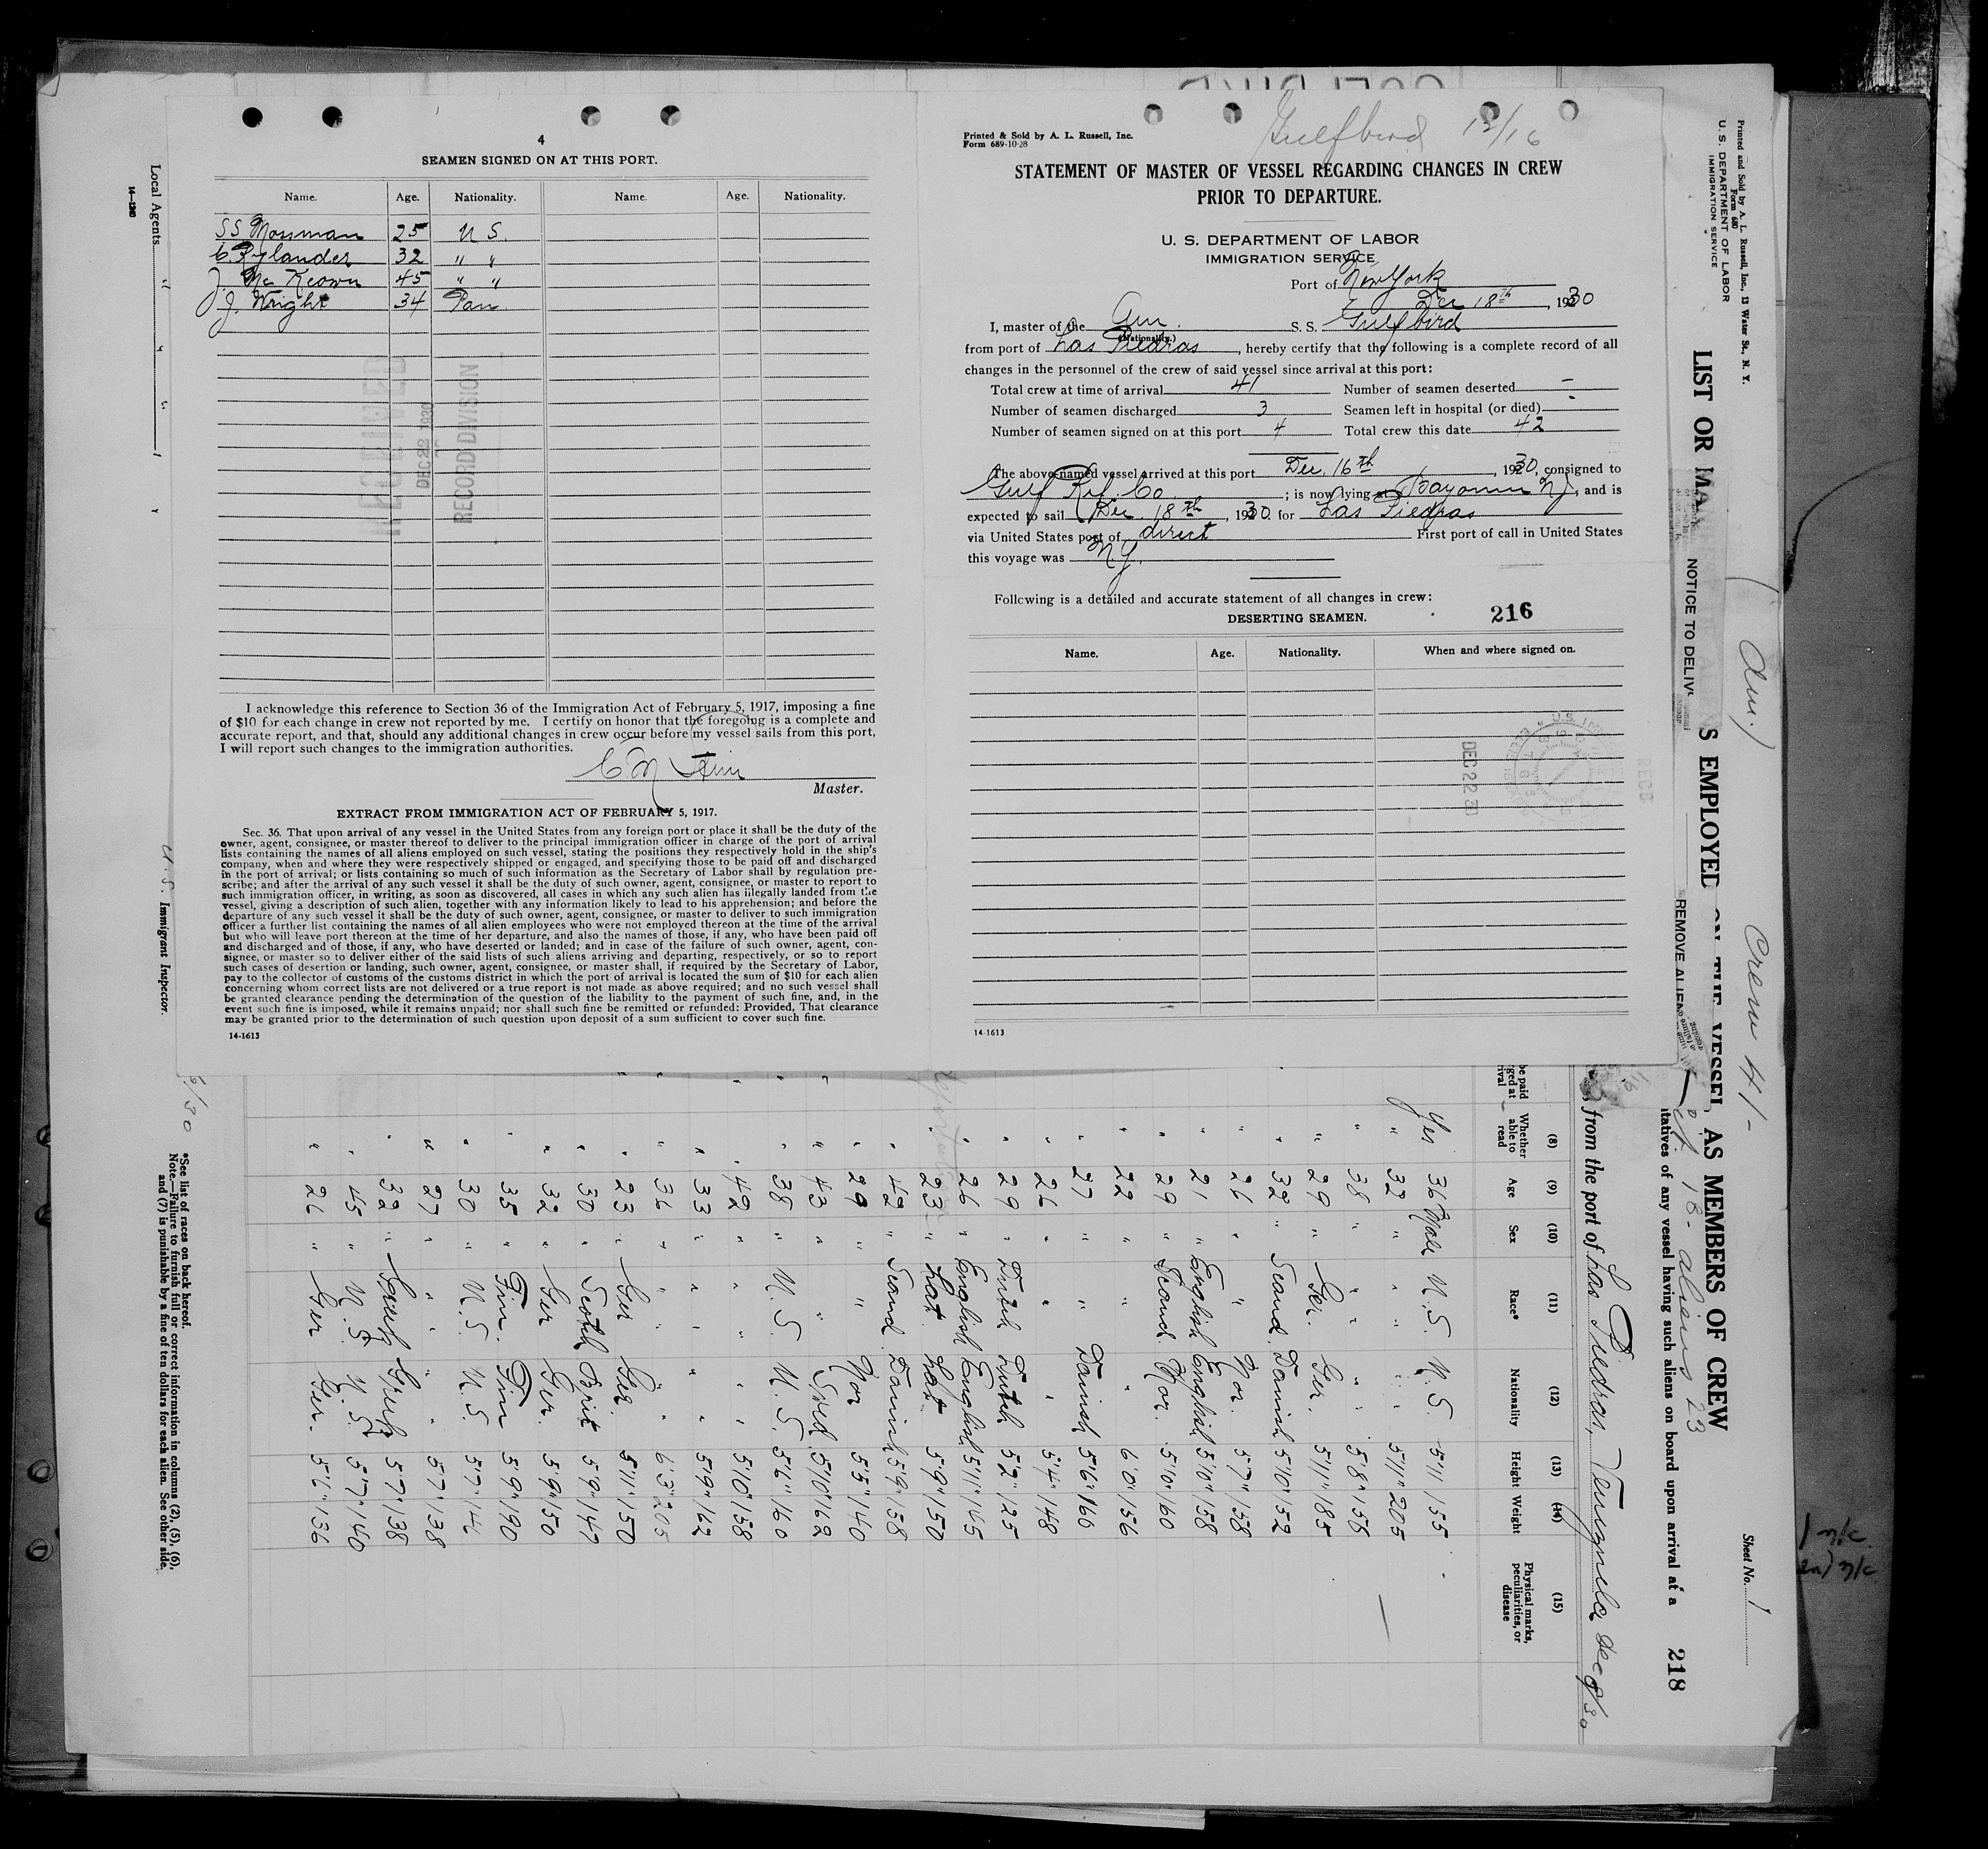 4
SEAMEN SIGNED ON AT THIS PORT.
Name. Age. Nationality. Name. Age. Nationality.
SS Mossman 25 U S.
C Rylander 32 " "
J. Mc Keown 45 " "
J. J. Wright 34 Pan
RECEIVED
DEC 22 1930
RECORD DIVISION
I acknowledge this reference to Section 36 of the Immigration Act of February 5, 1917, imposing a fine
of $10 for each change in crew not reported by me. I certify on honor that the foregoing is a complete and
accurate report, and that, should any additional changes in crew occur before my vessel sails from this port,
I will report such changes to the immigration authorities.
Master.
EXTRACT FROM IMMIGRATION ACT OF FEBRUARY 5, 1917.
Sec. 36. That upon arrival of any vessel in the United States from any foreign port or place it shall be the duty of the
owner, agent, consignee, or master thereof to deliver to the principal immigration officer in charge of the port of arrival
lists containing the names of all aliens employed on such vessel, stating the positions they respectively hold in the ship's
company, when and where they were respectively shipped or engaged, and specifying those to be paid off and discharged
in the port of arrival; or lists containing so much of such information as the Secretary of Labor shall by regulation pre-
scribe; and after the arrival of any such vessel it shall be the duty of such owner, agent, consignee, or master to report to
such immigration officer, in writing, as soon as discovered, all cases in which any such alien has illegally landed from the
vessel, giving a description of such alien, together with any information likely to lead to his apprehension; and before the
departure of any such vessel it shall be the duty of such owner, agent, consignee, or master to deliver to such immigration
officer a further list containing the names of all alien employees who were not employed thereon at the time of the arrival
but who will leave port thereon at the time of her departure, and also the names of those, if any, who have been paid off
and discharged and of those, if any, who have deserted or landed; and in case of the failure of such owner, agent, con-
signee, or master so to deliver either of the said lists of such aliens arriving and departing, respectively, or so to report
such cases of desertion or landing, such owner, agent, consignee, or master shall, if required by the Secretary of Labor,
pay to the collector of customs of the customs district in which the port of arrival is located the sum of $10 for each alien
concerning whom correct lists are not delivered or a true report is not made as above required; and no such vessel shall
be granted clearance pending the determination of the question of the liability to the payment of such fine, and, in the
event such fine is imposed, while it remains unpaid; nor shall such fine be remitted or refunded: Provided, That clearance
may be granted prior to the determination of such question upon deposit of a sum sufficient to cover such fine.
14-1613
Gulfbird 12/16
Printed & Sold by A. L. Russell, Inc.
Form 689-10-28
STATEMENT OF MASTER OF VESSEL REGARDING CHANGES IN CREW
PRIOR TO DEPARTURE.
U. S. DEPARTMENT OF LABOR
IMMIGRATION SERVICE
Port of New York
Dec 18th, 1930
I, master of the Am. S. S. Gulfbird
(Nationality.)
from port of Las Piedras, hereby certify that the following is a complete record of all
changes in the personnel of the crew of said vessel since arrival at this port:
Total crew at time of arrival 41 Number of seamen deserted -
Number of seamen discharged 3 Seamen left in hospital (or died) -
Number of seamen signed on at this port 4 Total crew this date 42
The above-named vessel arrived at this port Dec. 16th, 1930, consigned to
Gulf Ref. Co.; is now lying at Bayonne NJ, and is
expected to sail Dec. 18th, 1930. for Las Piedras
via United States port of direct First port of call in United States
this voyage was N.Y.
Following is a detailed and accurate statement of all changes in crew:
DESERTING SEAMEN. 216
Name. Age. Nationality. When and where signed on.
DEC 22 30
14-1613
Local Agents
14-1240
U. S. Immigrant Inspector.
*See list of races on back hereof.
Note.—Failure to furnish full or correct information in columns (2), (5), (6),
and (7) is punishable by a fine of ten dollars for each alien. See other side.
Printed and Sold by A. L. Russell, Inc., 13 Water St., N. Y.
Form 680
U. S. DEPARTMENT OF LABOR
IMMIGRATION SERVICE
(Am.) Crew 41-
Sheet No. 1
LIST OR MA S EMPLOYED ON THE VESSEL AS MEMBERS OF CREW
18- aliens 23
NOTICE TO DELIV
REMOVE ALIEN
itatives of any vessel having such aliens on board upon arrival at a
218
, from the port of Las Piedras, Venezuela Dec 8/30
(8) (9) (10) (11) (12) (13) (14) (15)
Whether able to read Age Sex Race* Nationality Height Weight Physical marks, peculiarities, or disease
Yes 36 Male U.S. U.S. 5'11" 155
" 32 " " " 5'11" 205
" 38 " " " 5'8" 156
" 29 " Ger. Ger. 5'11" 185
" 32 " Scand. Danish 5'10" 152
" 26 " " Nor. 5'7" 158
" 21 " English English 5'10" 158
" 29 " Scand. Nor. 5'10" 160
" 22 " " " 6'0" 156
" 27 " " Danish 5'6" 160
" 26 " " " 5'4" 148
" 29 " Dutch Dutch 5'2" 125
" 26 " English English 5'11" 145
" 23 " Lat. Lat. 5'9" 150
" 42 " Scand. Danish 5'9" 158
" 29 " " Nor 5'5" 140
" 43 " " Swed. 5'10" 162
" 38 " U.S. U.S. 5'6" 160
" 42 " " " 5'10" 158
" 33 " " " 5'9" 162
" 36 " " " 6'3" 205
" 23 " Ger Ger. 5'11" 150
" 30 " Scotch Brit 5'9" 147
" 32 " Ger Ger. 5'9" 150
" 35 " Fin. Fin 5'9" 190
" 30 " U.S. U.S. 5'7" 14
" 27 " " " 5'7" 138
" 32 " Greek Greek 5'7" 138
" 45 " U.S. U.S. 5'7" 140
" 26 " Ger Ger. 5'6" 136